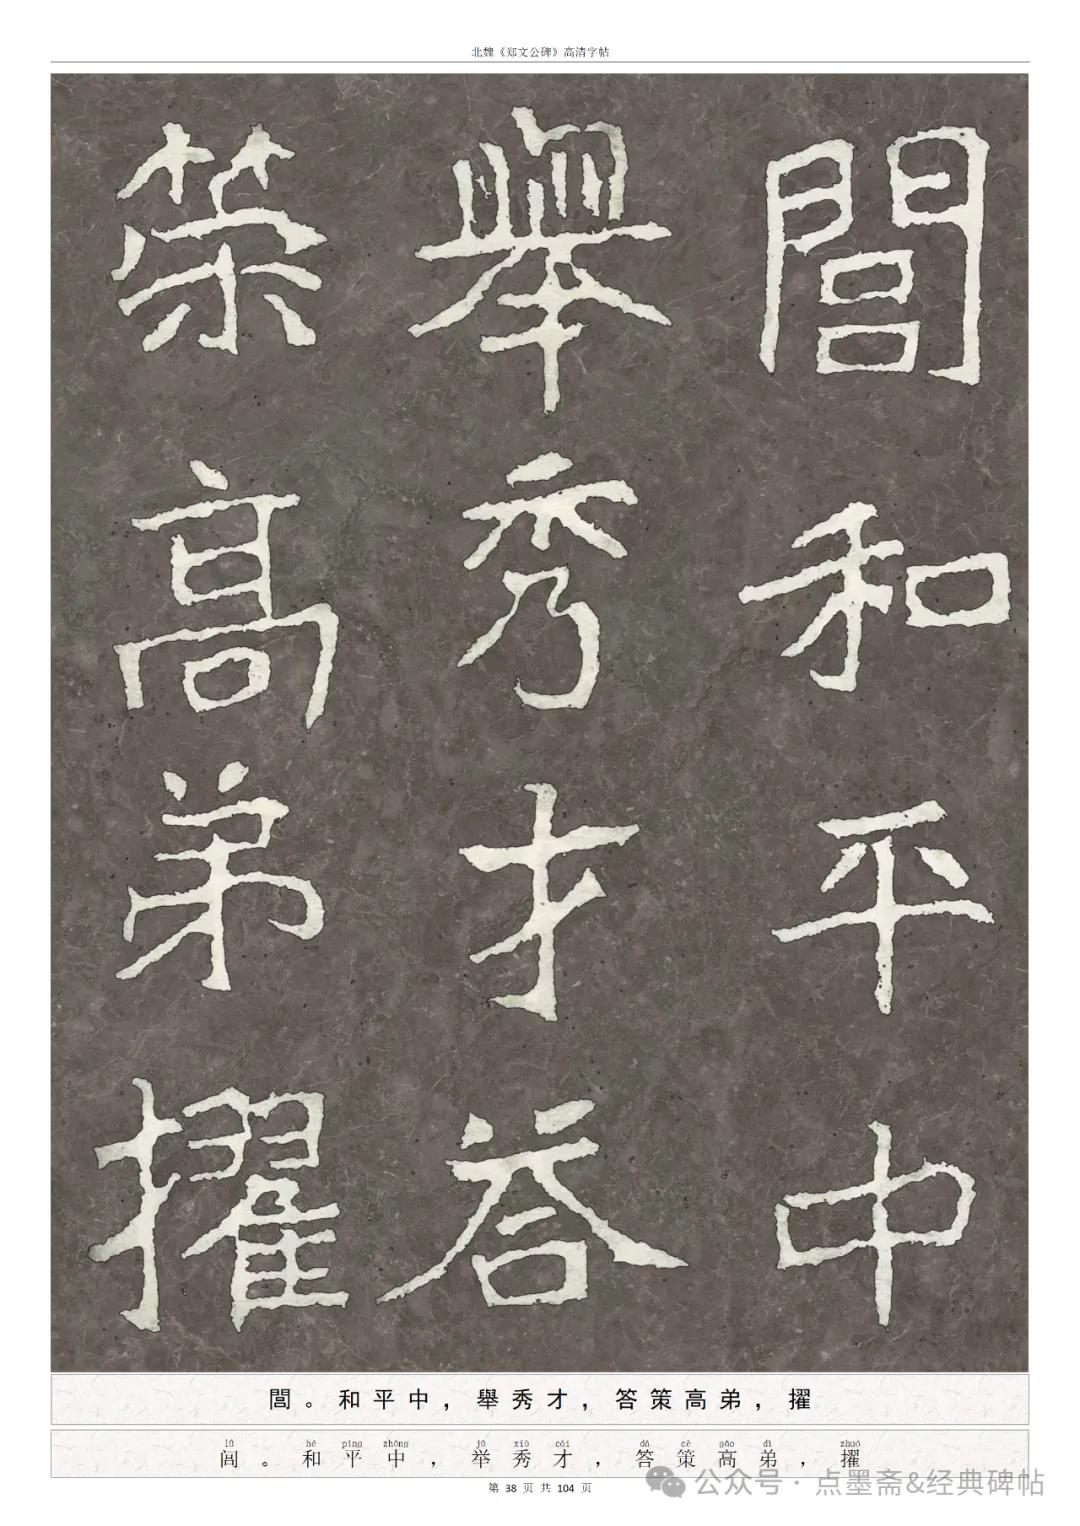 北魏《郑文公碑》高清字帖
閭和平中
舉秀才答
策高弟擢
閭。和平中，舉秀才，答策高弟，擢
lǘ hé píng zhōng jǔ xiù cái dá cè gāo dì zhuó
闾。和平中，举秀才，答策高弟，擢
第 38 页 共 104 页
公众号 · 点墨斋&经典碑帖